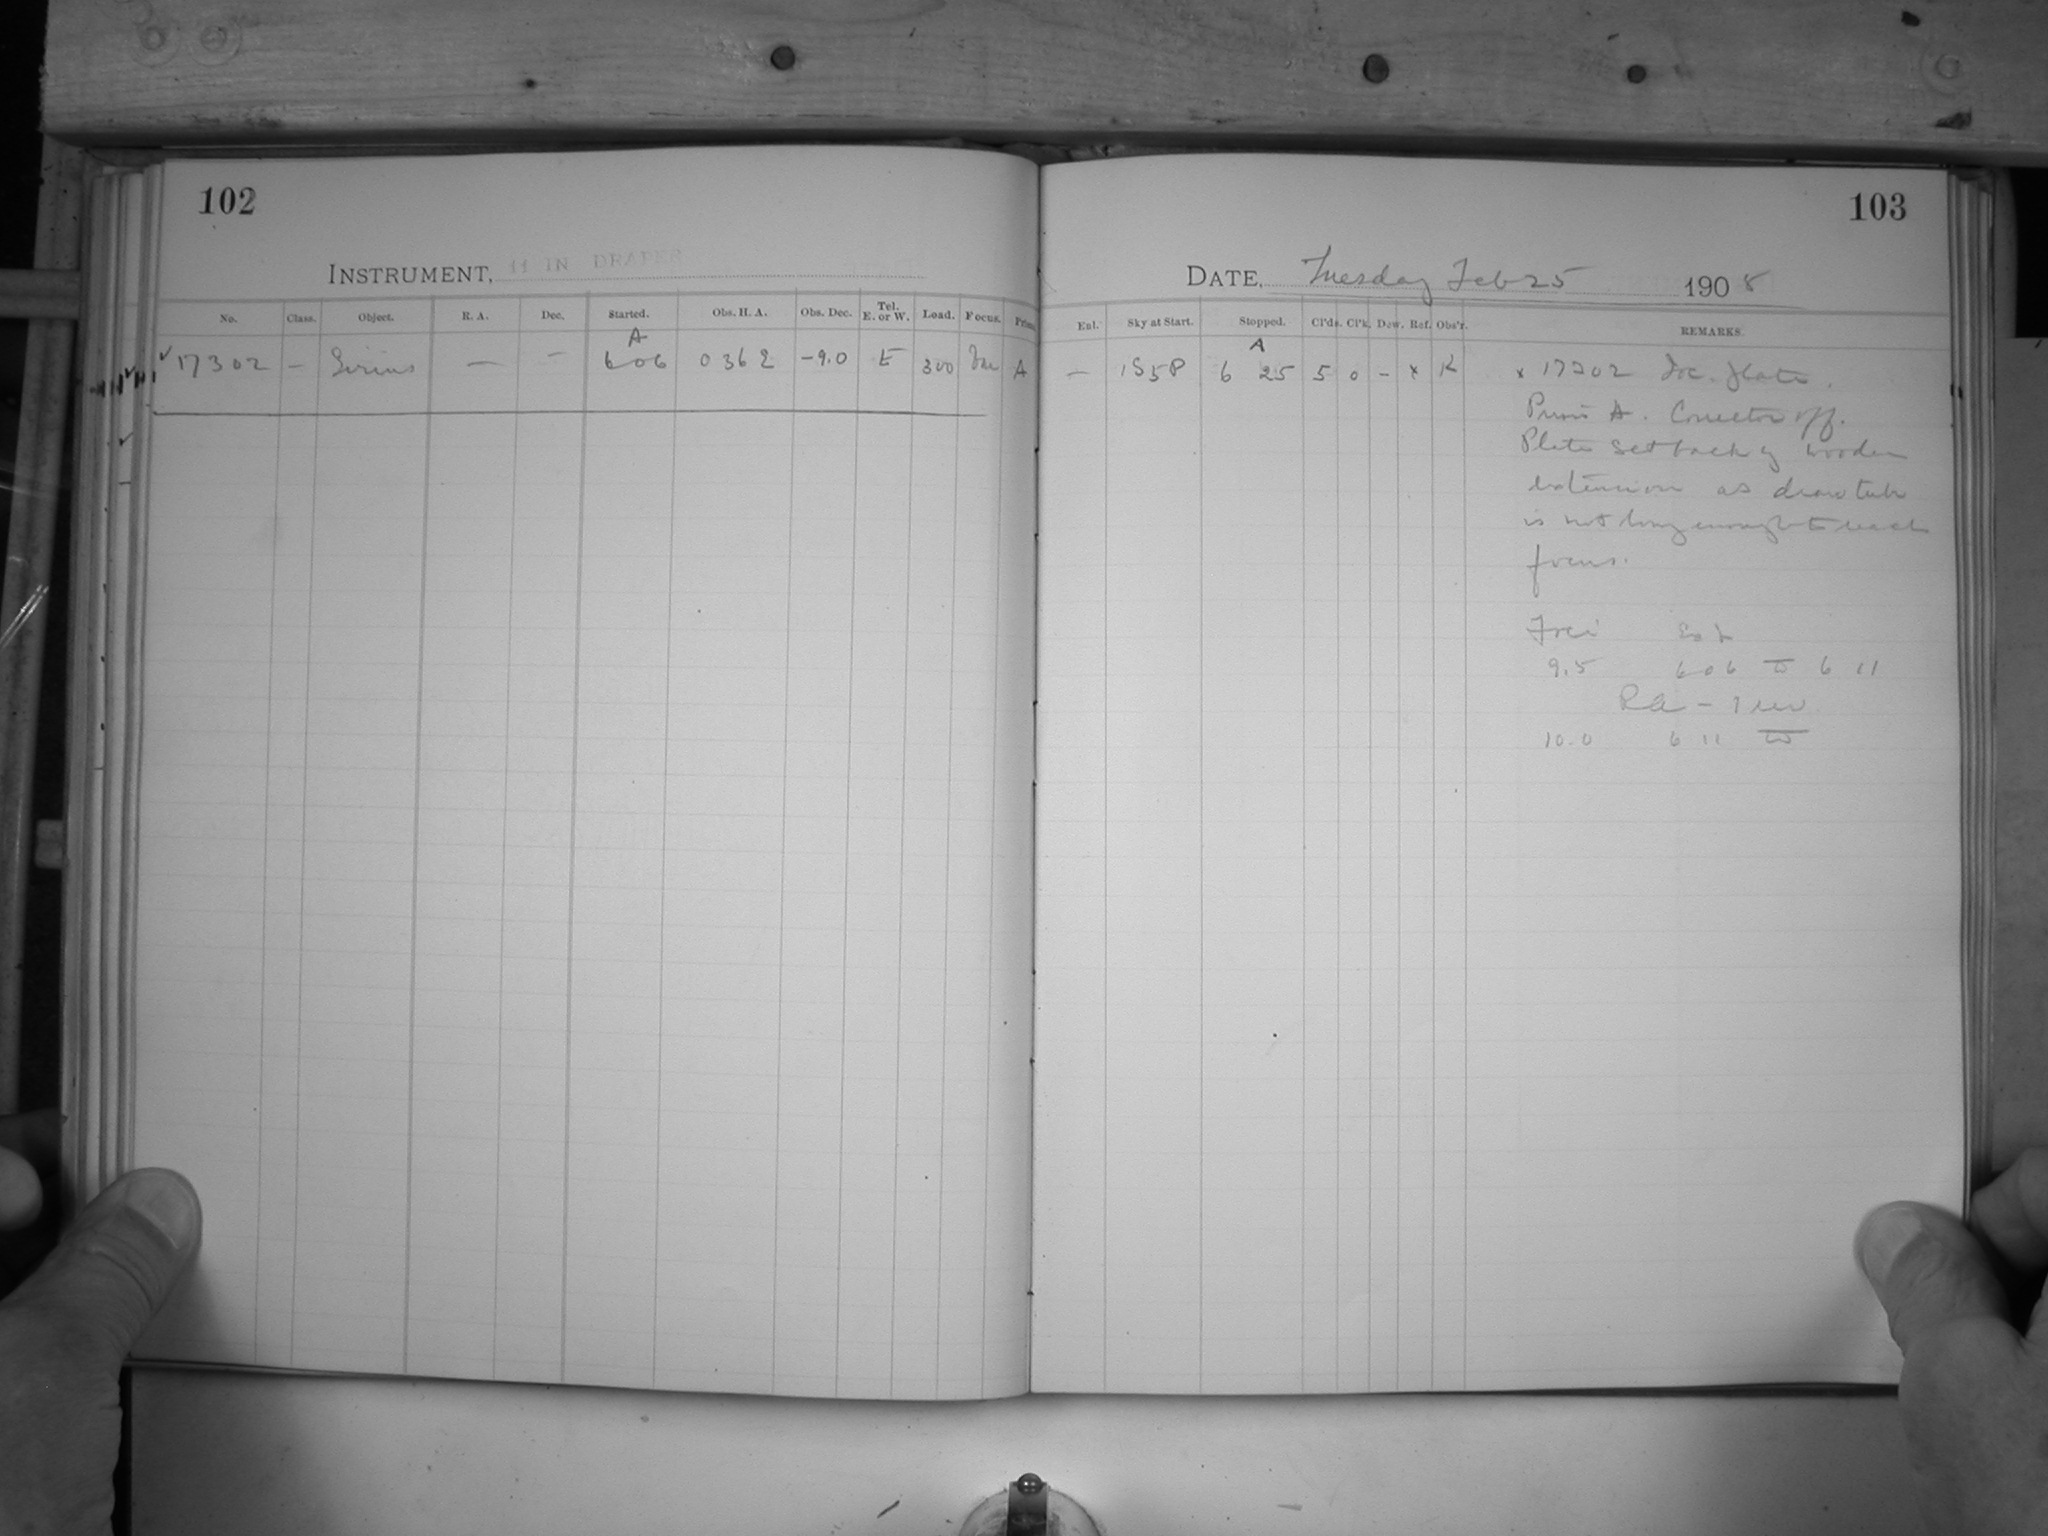 102
INSTRUMENT, 11 IN DRAPER
No. Class. Object. R. A. Dec. Started. Obs. H. A. Obs. Dec. Tel. E. or W. Lead. Focus. Prism
A
17302 – Sirius — – 6 06 0 36 E –9.0 E 300 Foc A
103
DATE, Tuesday Feb 25 1908
Enl. Sky at Start. Stopped. Cl'ds. Cl'k. Dew. Ref. Obs'r. REMARKS.
A
— 1S5P 6 25 5 0 – x K x 17302 Foc. plate.
Prism A. Corrector off.
Plate set back by wooden
extension as draw tube
is not long enough to reach
focus.
Foci Ex
9.5 6 06 6 11
10.0 6 11